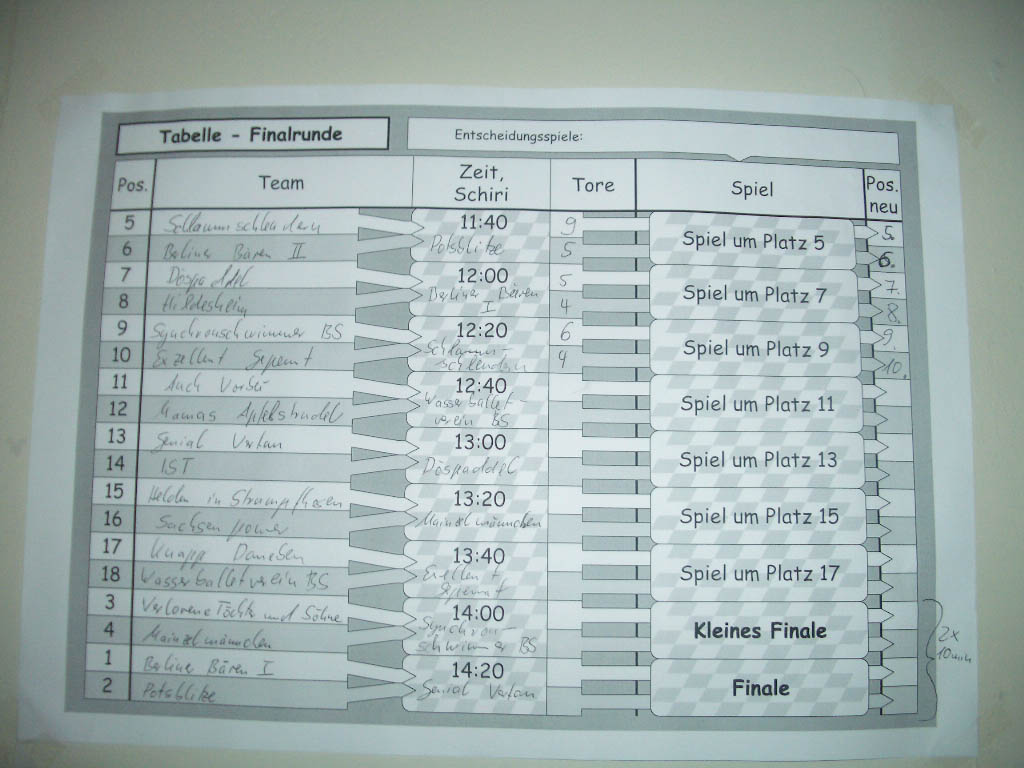 Tabelle - Finalrunde Entscheidungsspiele:
Pos. Team Zeit, Schiri Tore Spiel Pos. neu
5 Schlammschleudern 11:40 9 Spiel um Platz 5 5.
6 Berliner Bären II Potsblitze 5 6.
7 Döspaddel 12:00 5 Spiel um Platz 7 7.
8 Hildesheim Berliner Bären I 4 8.
9 Synchronschwimmer BS 12:20 6 Spiel um Platz 9 9.
10 Exzellent Gepennt Schlammschleudern 4 10.
11 Auch Vorbei 12:40 Spiel um Platz 11
12 Mamas Apfelstrudel Wasserballetverein BS
13 Genial Vertan 13:00 Spiel um Platz 13
14 IST Döspaddel
15 Helden in Strumpfhosen 13:20 Spiel um Platz 15
16 Sachsenpower Mainzelmännchen
17 Knapp Daneben 13:40 Spiel um Platz 17
18 Wasserballetverein BS Exellent Gepennt
3 Verlorene Töchter und Söhne 14:00 Kleines Finale
4 Mainzelmännchen Synchronschwimmer BS 2x 10min
1 Berliner Bären I 14:20 Finale
2 Potsblitze Genial Vertan